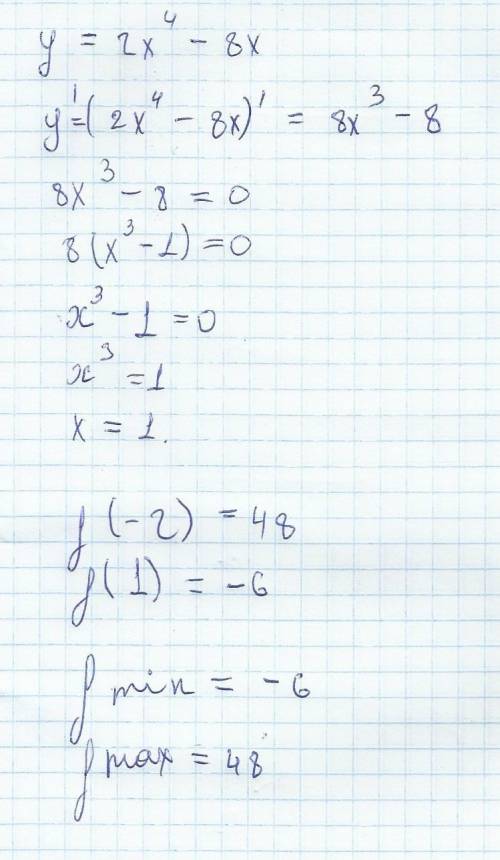 y = 2x⁴ - 8x
y' = (2x⁴ - 8x)' = 8x³ - 8
8x³ - 8 = 0
8(x³ - 1) = 0
x³ - 1 = 0
x³ = 1
x = 1.
f(-2) = 48
f(1) = -6
f min = -6
f max = 48